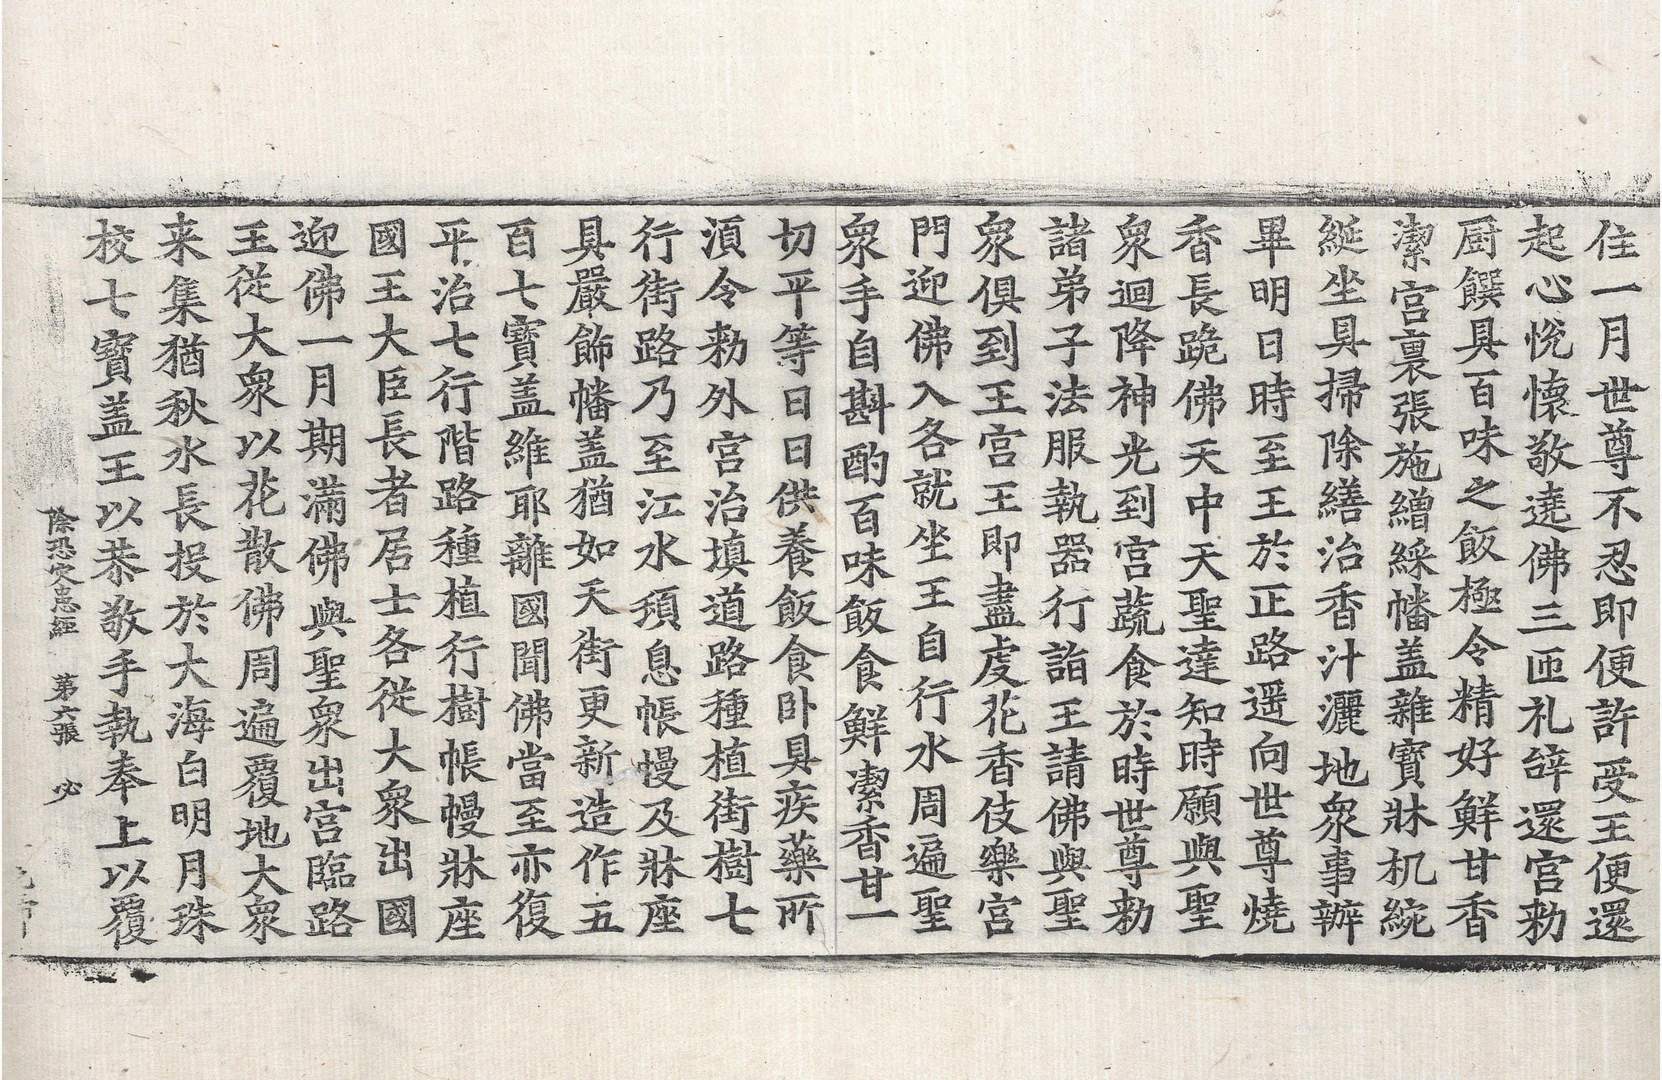 住一月世尊不忍即便許受王便還
起心悅懷敬遶佛三匝礼辝還宮勑
厨饌具百味之飯極令精好鮮甘香
潔宮裏張施繒綵幡盖雜寶牀机綩
綖坐具掃除繕治香汁灑地衆事辦
畢明日時至王於正路遥向世尊燒
香長跪佛天中天聖達知時願與聖
衆迴降神光到宮蔬食於時世尊勑
諸弟子法服執器行詣王請佛與聖
衆俱到王宮王即盡虔花香伎樂宮
門迎佛入各就坐王自行水周遍聖
衆手自斟酌百味飯食鮮潔香甘一
切平等日日供養飯食卧具疾藥所
湏令勑外宮治填道路種植街樹七
行街路乃至江水頓息帳幔及牀座
具嚴飾幡盖猶如天街更新造作五
百七寶盖維耶離國聞佛當至亦復
平治七行階路種植行樹帳幔牀座
國王大臣長者居士各從大衆出國
迎佛一月期滿佛與聖衆出宮臨路
王從大衆以花散佛周遍覆地大衆
来集猶秋水長投於大海白明月珠
校七寶盖王以恭敬手執奉上以覆
除恐灾患經 第六張 必